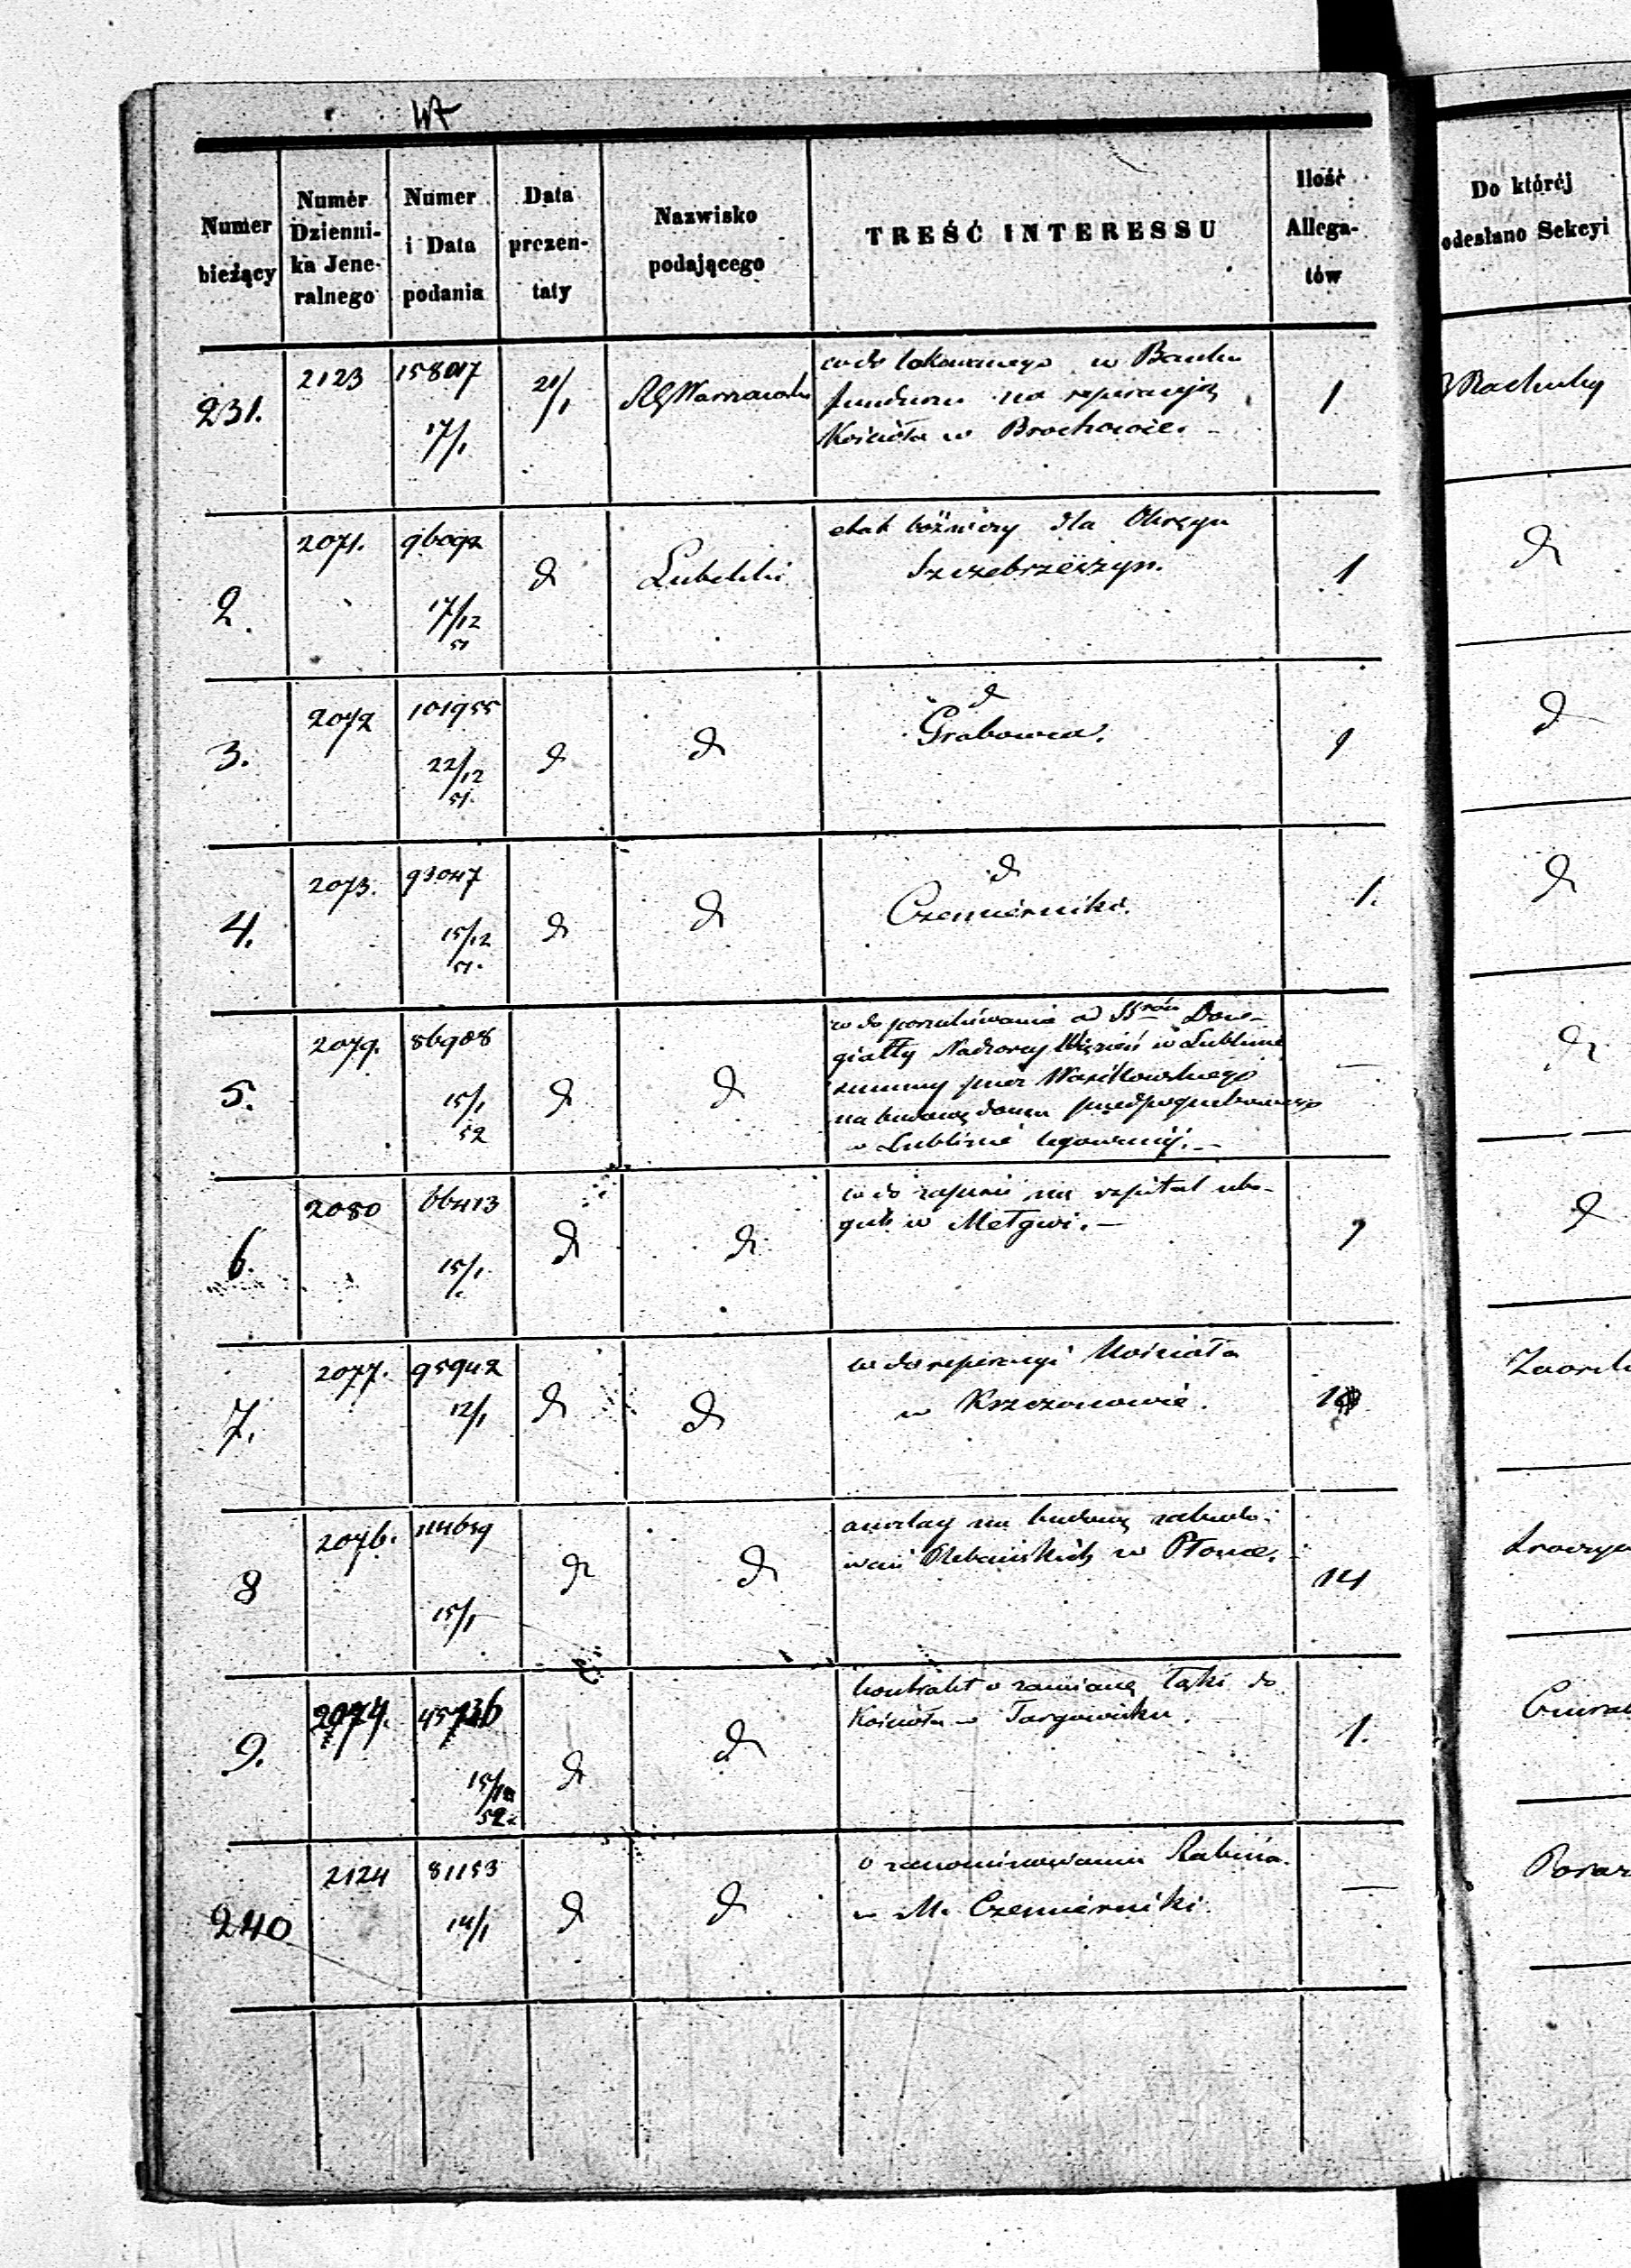 Numer
bieżący
Numer
Dzienni-
ka Jene-
ralnego
Numer
i Data
podania
Data
prezen-
taty
Nazwisko
podającego
TREŚĆ INTERESSU
Ilość
Allega-
tów
Do której
odesłano Sekcyi
231.
2123
15807
17/1
21/1
RG Warszawski
co do lokowanego w Banku
funduszu na reperacyją
Kościoła w Brochowie.
1
Rachuby
2.
2071.
96092
17/12
51
d
Lubelski
etat bóżniczy dla Okręgu
Szczebrzeszyn.
1
d
3.
2072
101955
22/12
51.
d
d
d
Grabowca.
1
d
4.
2073.
93047
15/12
51.
d
d
d
Czemierniki.
1.
d
5.
2079.
86908
15/1
52
d
d
co do poszukiwania od SSrów Dow-
giałły Nadzorcy Więzień w Lublinie
summy przez Wasilkowskiego
na budowę domu przedpogrzebowego
w Lublinie legowanej.
—
d
6.
2080
66413
15/1
d
d
co do zapisu na szpital ubo-
gich w Mełgwi. —
1
d
7.
2077.
95942
12/1
d
d
co do reperacyi Kościoła
w Krzczonowie.
8
2076.
114659
15/1
d
d
anszlag na budowę zabudo-
wań Plebańskich w Płonce.
14
9.
2074.
45736
52.
d
d
kontrakt o zamianę łąki do
Kościoła w Targowisku.
1.
240
2124
81153
14/1
d
d
o zanominowaniu Rabina
w M. Czemierniki.
—